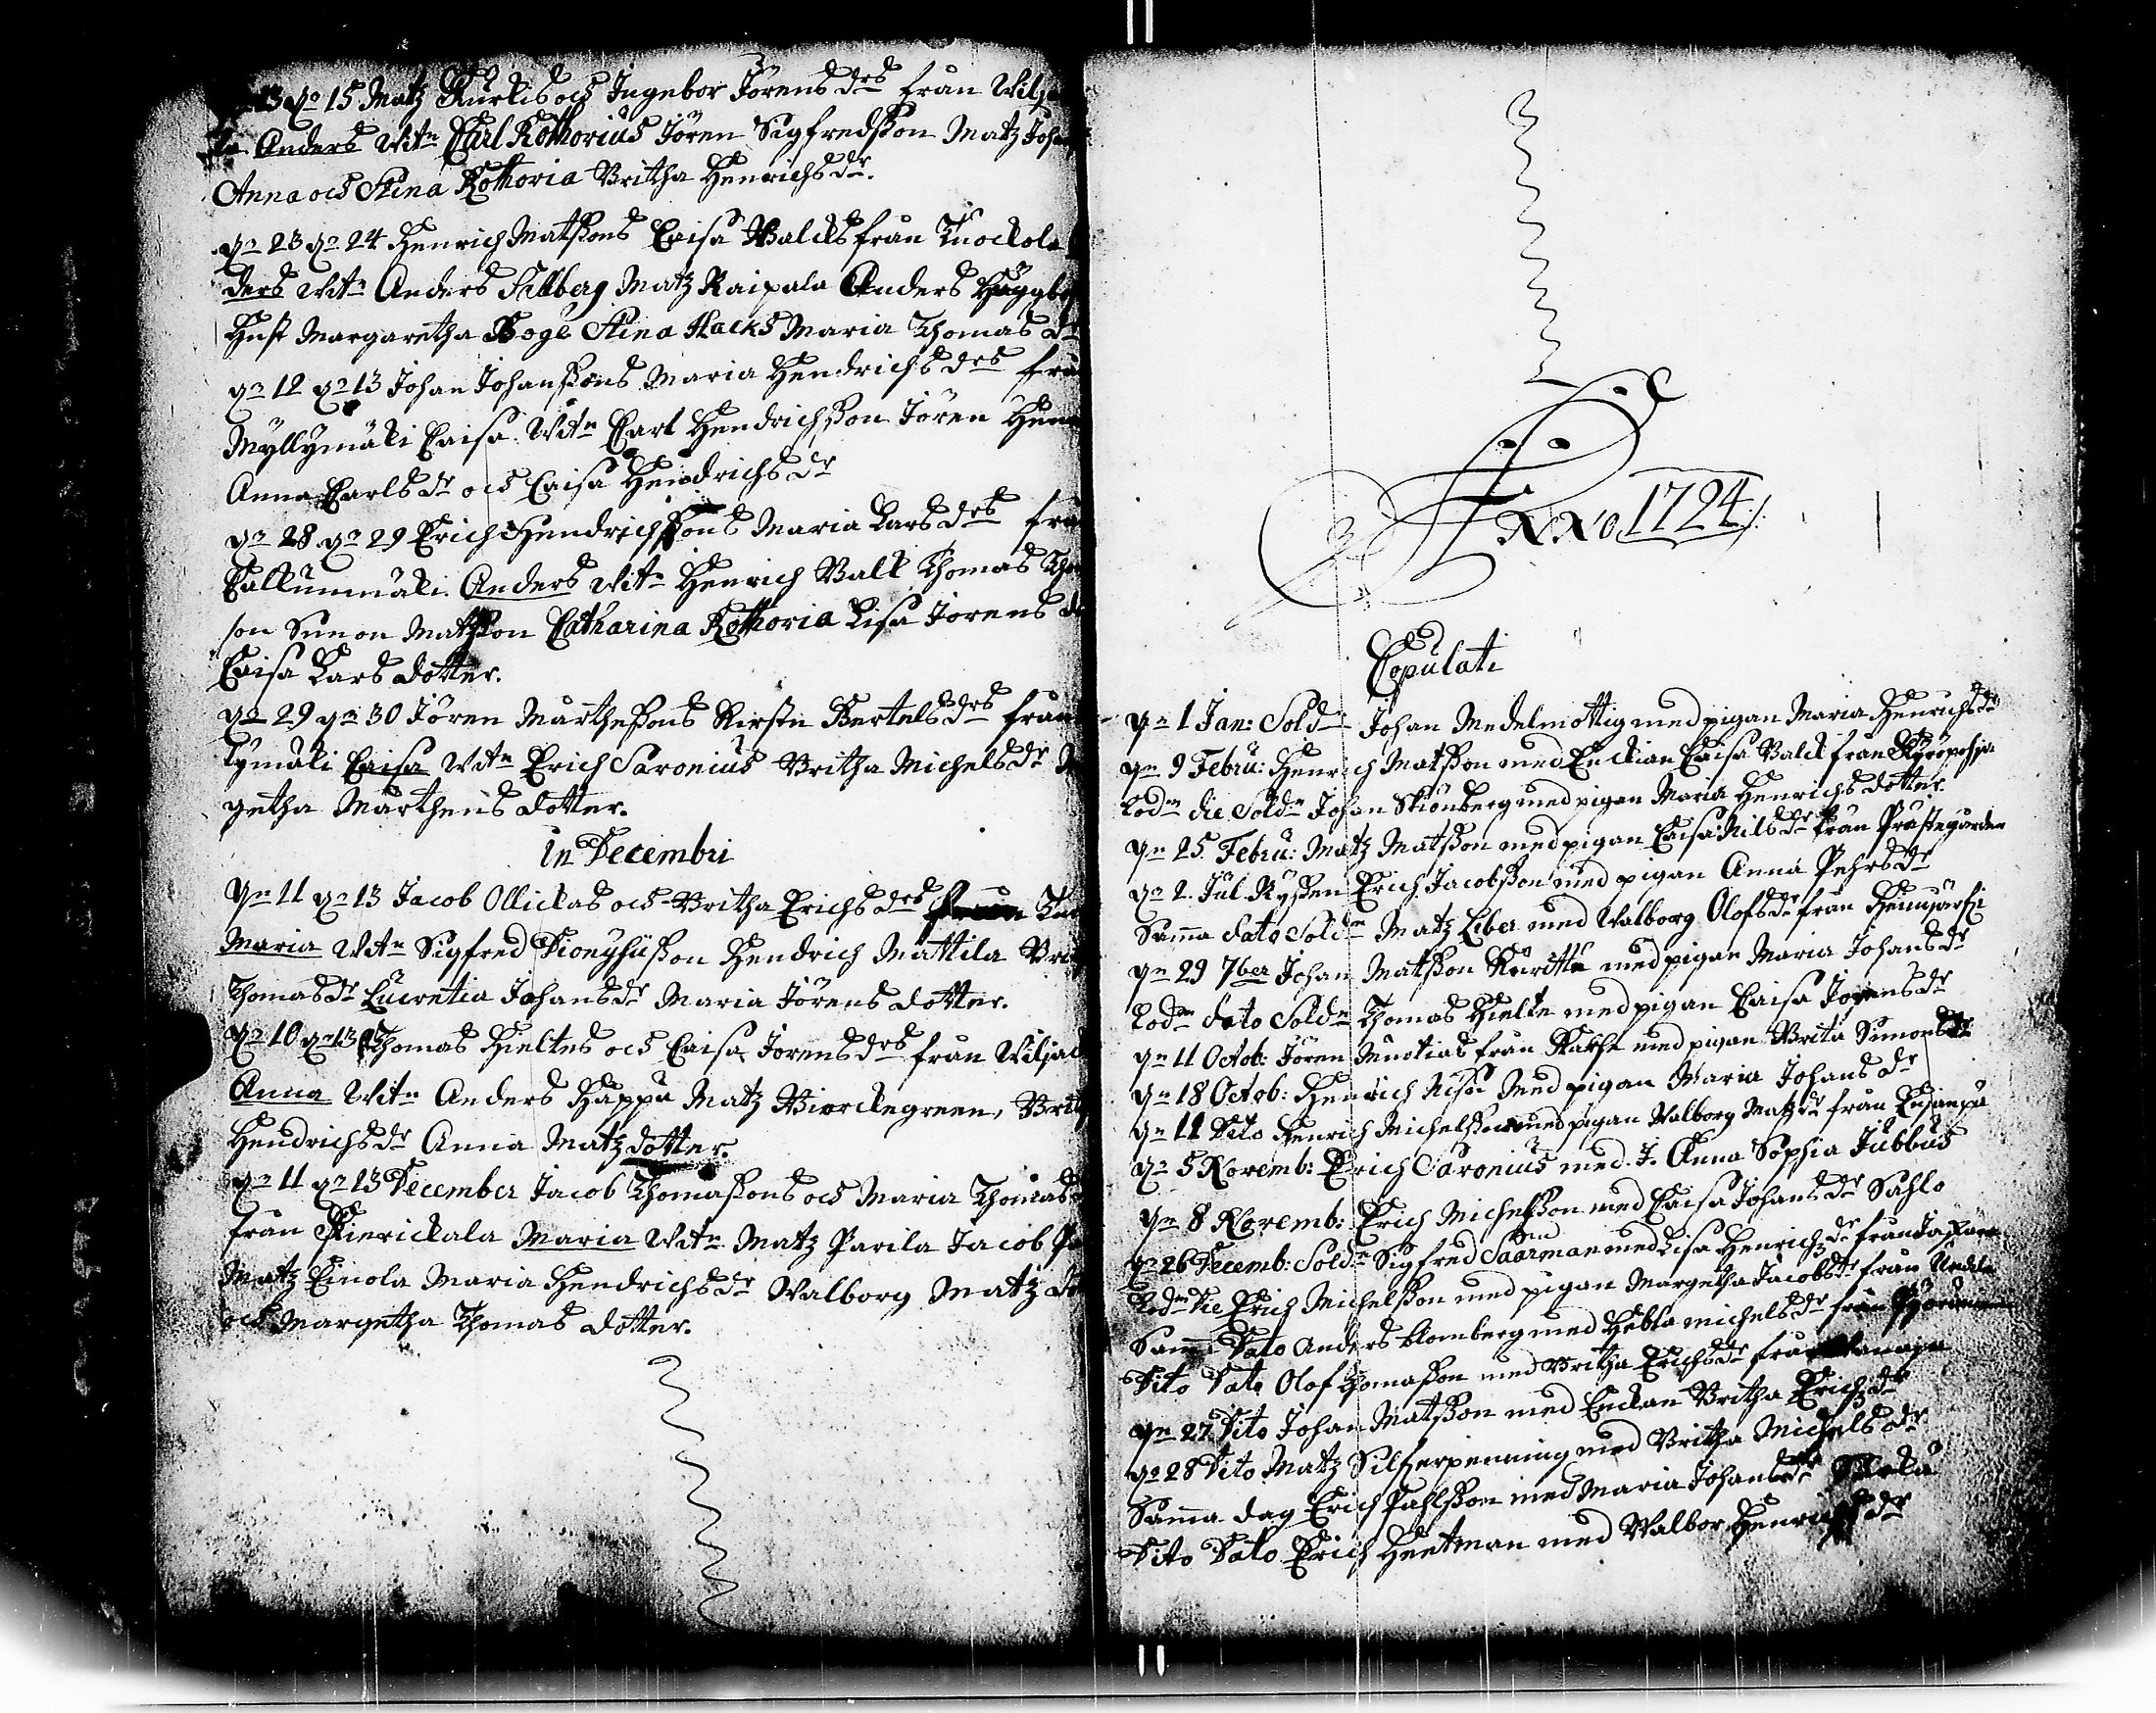 13 dn 15 Matz Kurkis och Ingebor Jörens drs från Wilja
la Anders Witn Carl Rothovius Jören Sigfredsson Matz Joha
Anna och Stina Rothovia Britha Henrichs dr.
dn 23 dn 24 Henrich Matssons Caisa Walcks från Knockola
ders Witn Anders Sillberg Matz Raipala Anders Hägg
Hust Margaretha Boge Stina Stacks Maria Thomas dr
dn 12 dn 13 Johan Johanssons Maria Hendrichs drs frå
Myllymäki Caisa Witn Carl Hendrichsson Jören Hen
Anna Carls dr och Caisa Hendrichs dr
dn 28 dn 29 Erich Hendrichssons Maria Lars drs frå
Kallunmäki Anders Witn Henrich Valk Thomas Tho
son Simon Matsson Catharina Rothovia Lisa Jörens d
Caisa Lars dotter.
dn 29 dn 30 Jören Märthessons Kirstin Bertels drs från
lymäki Caisa Witn Erich Saxonius Britha Michels dr M
getha Märthens dotter.
In Decembri
dn 11 dn 13 Jacob Ollickas och Britha Erichs drs från
Maria Witn Sigfred Dionysiusson Hendrich Mattila Brit
Thomas dr Lucretia Johans dr Maria Jörens dotter.
dn 10 dn 13 Thomas Hieltes och Caisa Jörens drs från Wiljac
Anna Witn Anders Happu Matz Biörckegreen, Brit
Hendrichs dr Anna Matz dotter.
dn 11 dn 13 December Jacob Thomassons och Maria Thomas
från Kierickala Maria Witn Matz Parila Jacob Pa
Matz Einola Maria Hendrichs dr Walborg Matz do
och Margetha Thomas dotter.
Anno 1724
Copulati
dn 1 Jan: Soldn Johan Medelmåttig med pigan Maria Henrichs dr
dn 9 Febru: Henrich Matsson med Enckian Caisa Valck från
Eodn die Soldn Johan Skiönberg med pigan Maria Henrichs dotter.
dn 25 Febru: Matz Matsson med pigan Caisa Nils dr från Prästegården
dn 2. Jul. Ryssen Erich Jacobsson med pigan Anna Pehrs dr
Samma dato Soldn Matz Liber med Walborg Olofs dr från
dn 29 7ber Johan Matsson Knritta med pigan Maria Johans dr
Eodn dato Soldn Thomas Hielte med pigan Caisa Jörens dr
dn 11 Octob: Jören från med pigan Brita Simons dr
dn 18 Octob: Henrich Nisu Med pigan Maria Johans dr
dn 11 Dito Henrich Michelsson med pigan Walborg Matz dr från
dn 5 Novemb: Erich Saxonius med J. Anna Sophia Jubbus
dn 8 Novemb: Erich Michelsson med Caisa Johans dr Sahlo
dn 26 Decemb: Soldn Sigfred Saarman med Lisa Henrichz dr från
Eodn Die Erich Michelsson med pigan Margetha Jacobs dr från
Samma Dato Anders Blomberg med Hebla michels dr från
Dito Dato Olof Thomasson med Britha Erichs dr från
dn 27 Dito Johan Matsson med Enckan Britha Erichz dr
dn 28 Dito Matz Silfverpenning med Britha Michels dr
Samma dag Erich Pahlsson med Maria Johans dr
Dito Dato Erich Heetman med Walbor Henrichs dr